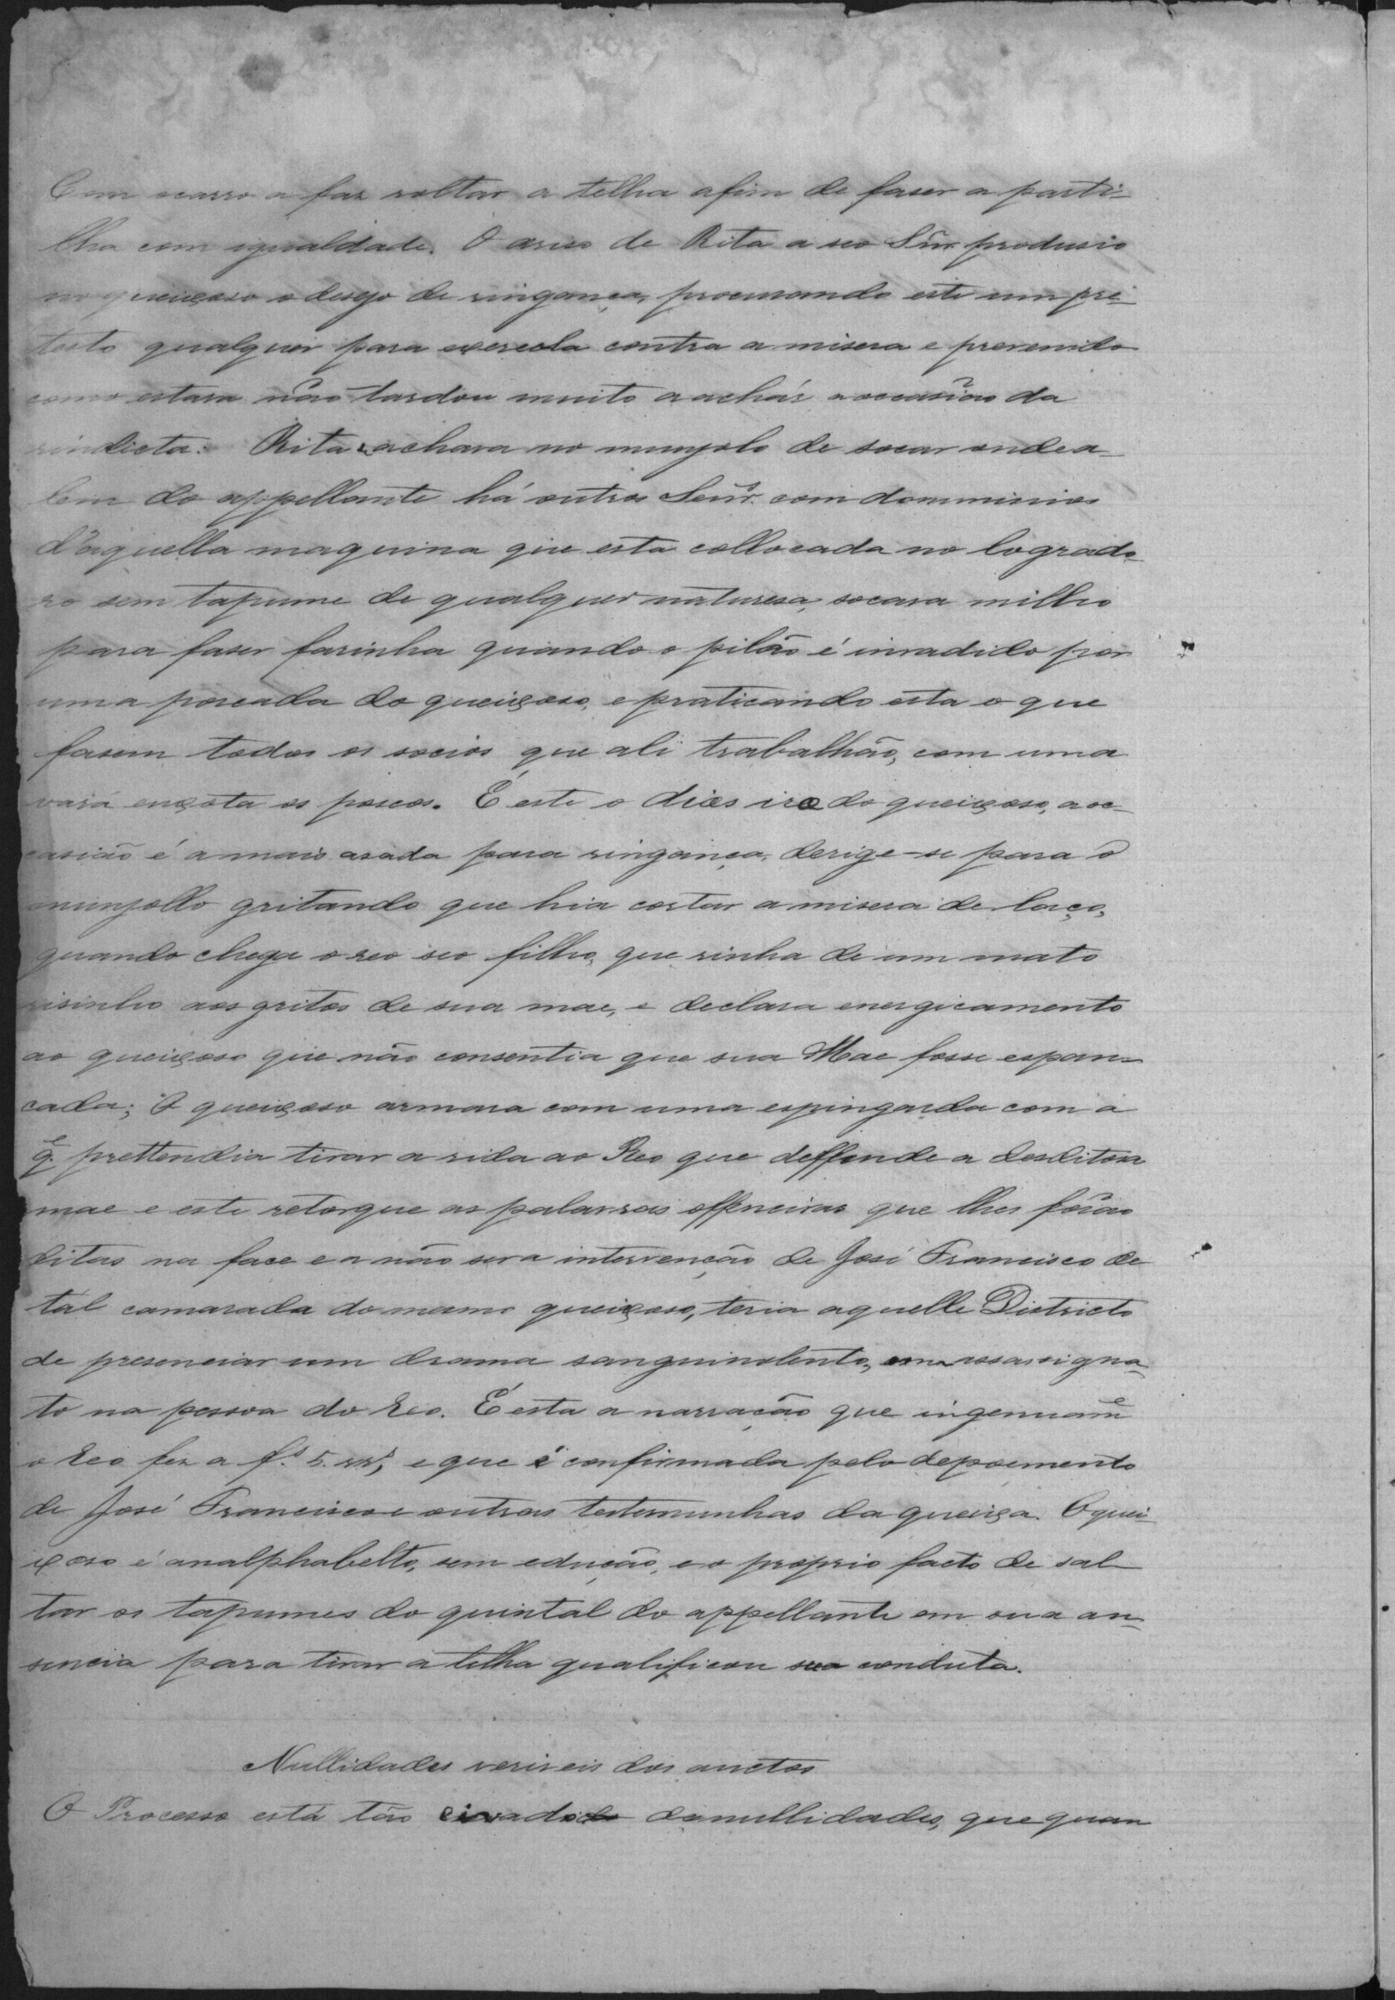 a faz voltar a telha afim de faser a parti-
lha com igualdade. O aviso de Rita a seo Snr. produsio
no queixoso o desejo de vingança, procurando este um pre-
testo qualquer para exercela contra a misera e prevenido
como estava não tardou muito a achár a occasião da
vindicta. Rita se achava no munjolo de socar onde a-
lem do appellante há outros Senrs. com domminios
d'aquella maquina que esta collocada no logrado-
ro sem tapume de qualquer naturesa, socava milho
para faser farinha quando o pilão é invadido por
uma porcada do queixoso, e praticando esta o que
fasem todos os socios que ali trabalhão, com uma
vará enxota os porcos. É este o dies irae do queixoso, a oc-
casião é a mais asada para vingança, derige-se para o
munjollo gritando que hia cortar a misera de laço,
quando chega o reo seo filho, que vinha de um mato
visinho aos gritos de sua mae, e declara energicamente
ao queixoso que não consentia que sua Mae fosse espan-
cada; O queixoso armara com uma espingarda com a
q.e prettendia tirar a vida ao Reo que deffende a desditosa
mae e este retorque as palavras offencivas que lhes forão
ditas na face e a não ser a intervenção de José Francisco de
tál camarada do mesmo queixoso, teria aquelle Districto
de presenciar um drama sanguinolento, um assassigna-
to na pessoa do Reo. É esta a narração que ingenuam.e
o Reo fez a f.s 5. e que é confirmada pelo depoimento
de José Francisco e outras testemunhas da queixa. O quei-
xoso é analphabelto, sem edução, e o proprio facto de sal-
tar os tapumes do quintal do appellante em sua au-
sencia para tirar a telha qualificou sua conduta.
Nullidades veriveis dos auctos
O Processo está tão eivado de nullidades, que quan